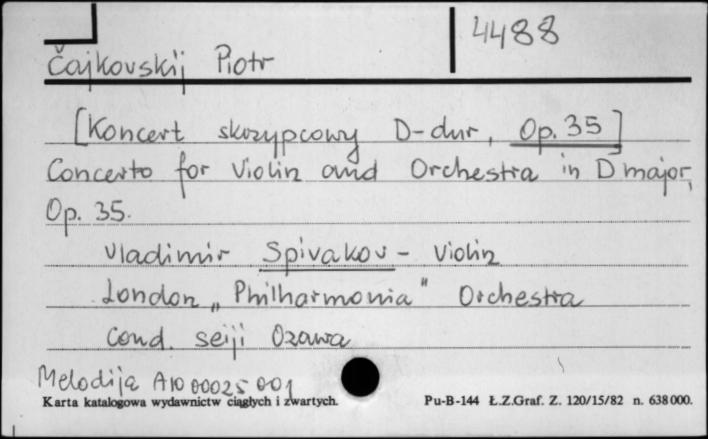 4488
Čajkovskij Piotr
[Koncert skrzypcowy D-dur, Op. 35]
Concerto for Violin and Orchestra in D major,
Op. 35.
Vladimir Spivakov - violin
London „Philharmonia" Orchestra
cond. seiji Ozawa
Melodija A10 00025 001
Karta katalogowa wydawnictw ciągłych i zwartych. Pu-B-144 Ł.Z.Graf. Z. 120/15/82 n. 638 000.